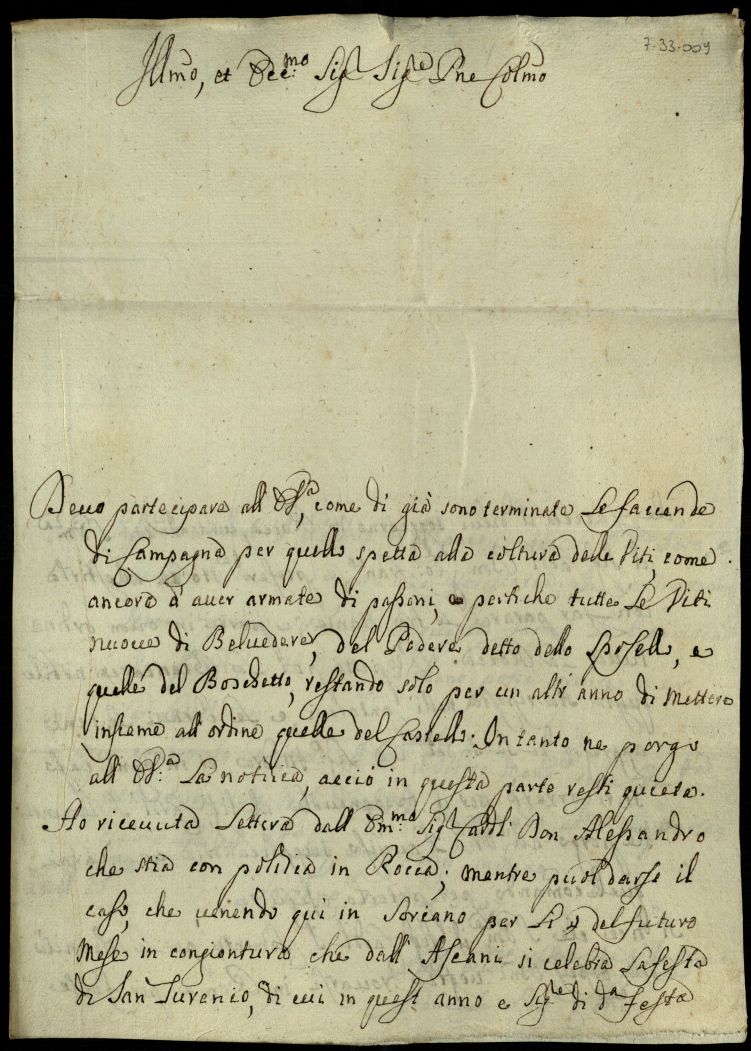 7-33-009
Illmo, et Ecc:mo Sigr Sigre Pne Colmo
Devo partecipare all' E.V.a, come di già sono terminate Le facende
di Campagna per quello spetta alla coltura delle Viti, come
ancora d'aver armate di passoni, e pertiche tutte Le Viti
nuove di Belvedere, del Podere detto dello, e
quelle del Boschetto, restando solo per un altr'anno di mettere
insieme all'ordine quelle del Castello. In tanto ne porgo
all' E.V.a La notizia, acciò in questa parte resti quieta.
Ho ricevuta Lettera dall' Em:mo Sigr Cardl: Don Alessandro
che stia con polidia in Rocca; mentre puol darse il
caso, che venendo qui in Soriano per Li del futuro
Mese in congiontura che dall' Ascani si celebra La festa
di San, di cui in quest'anno e Sigre di da Festa